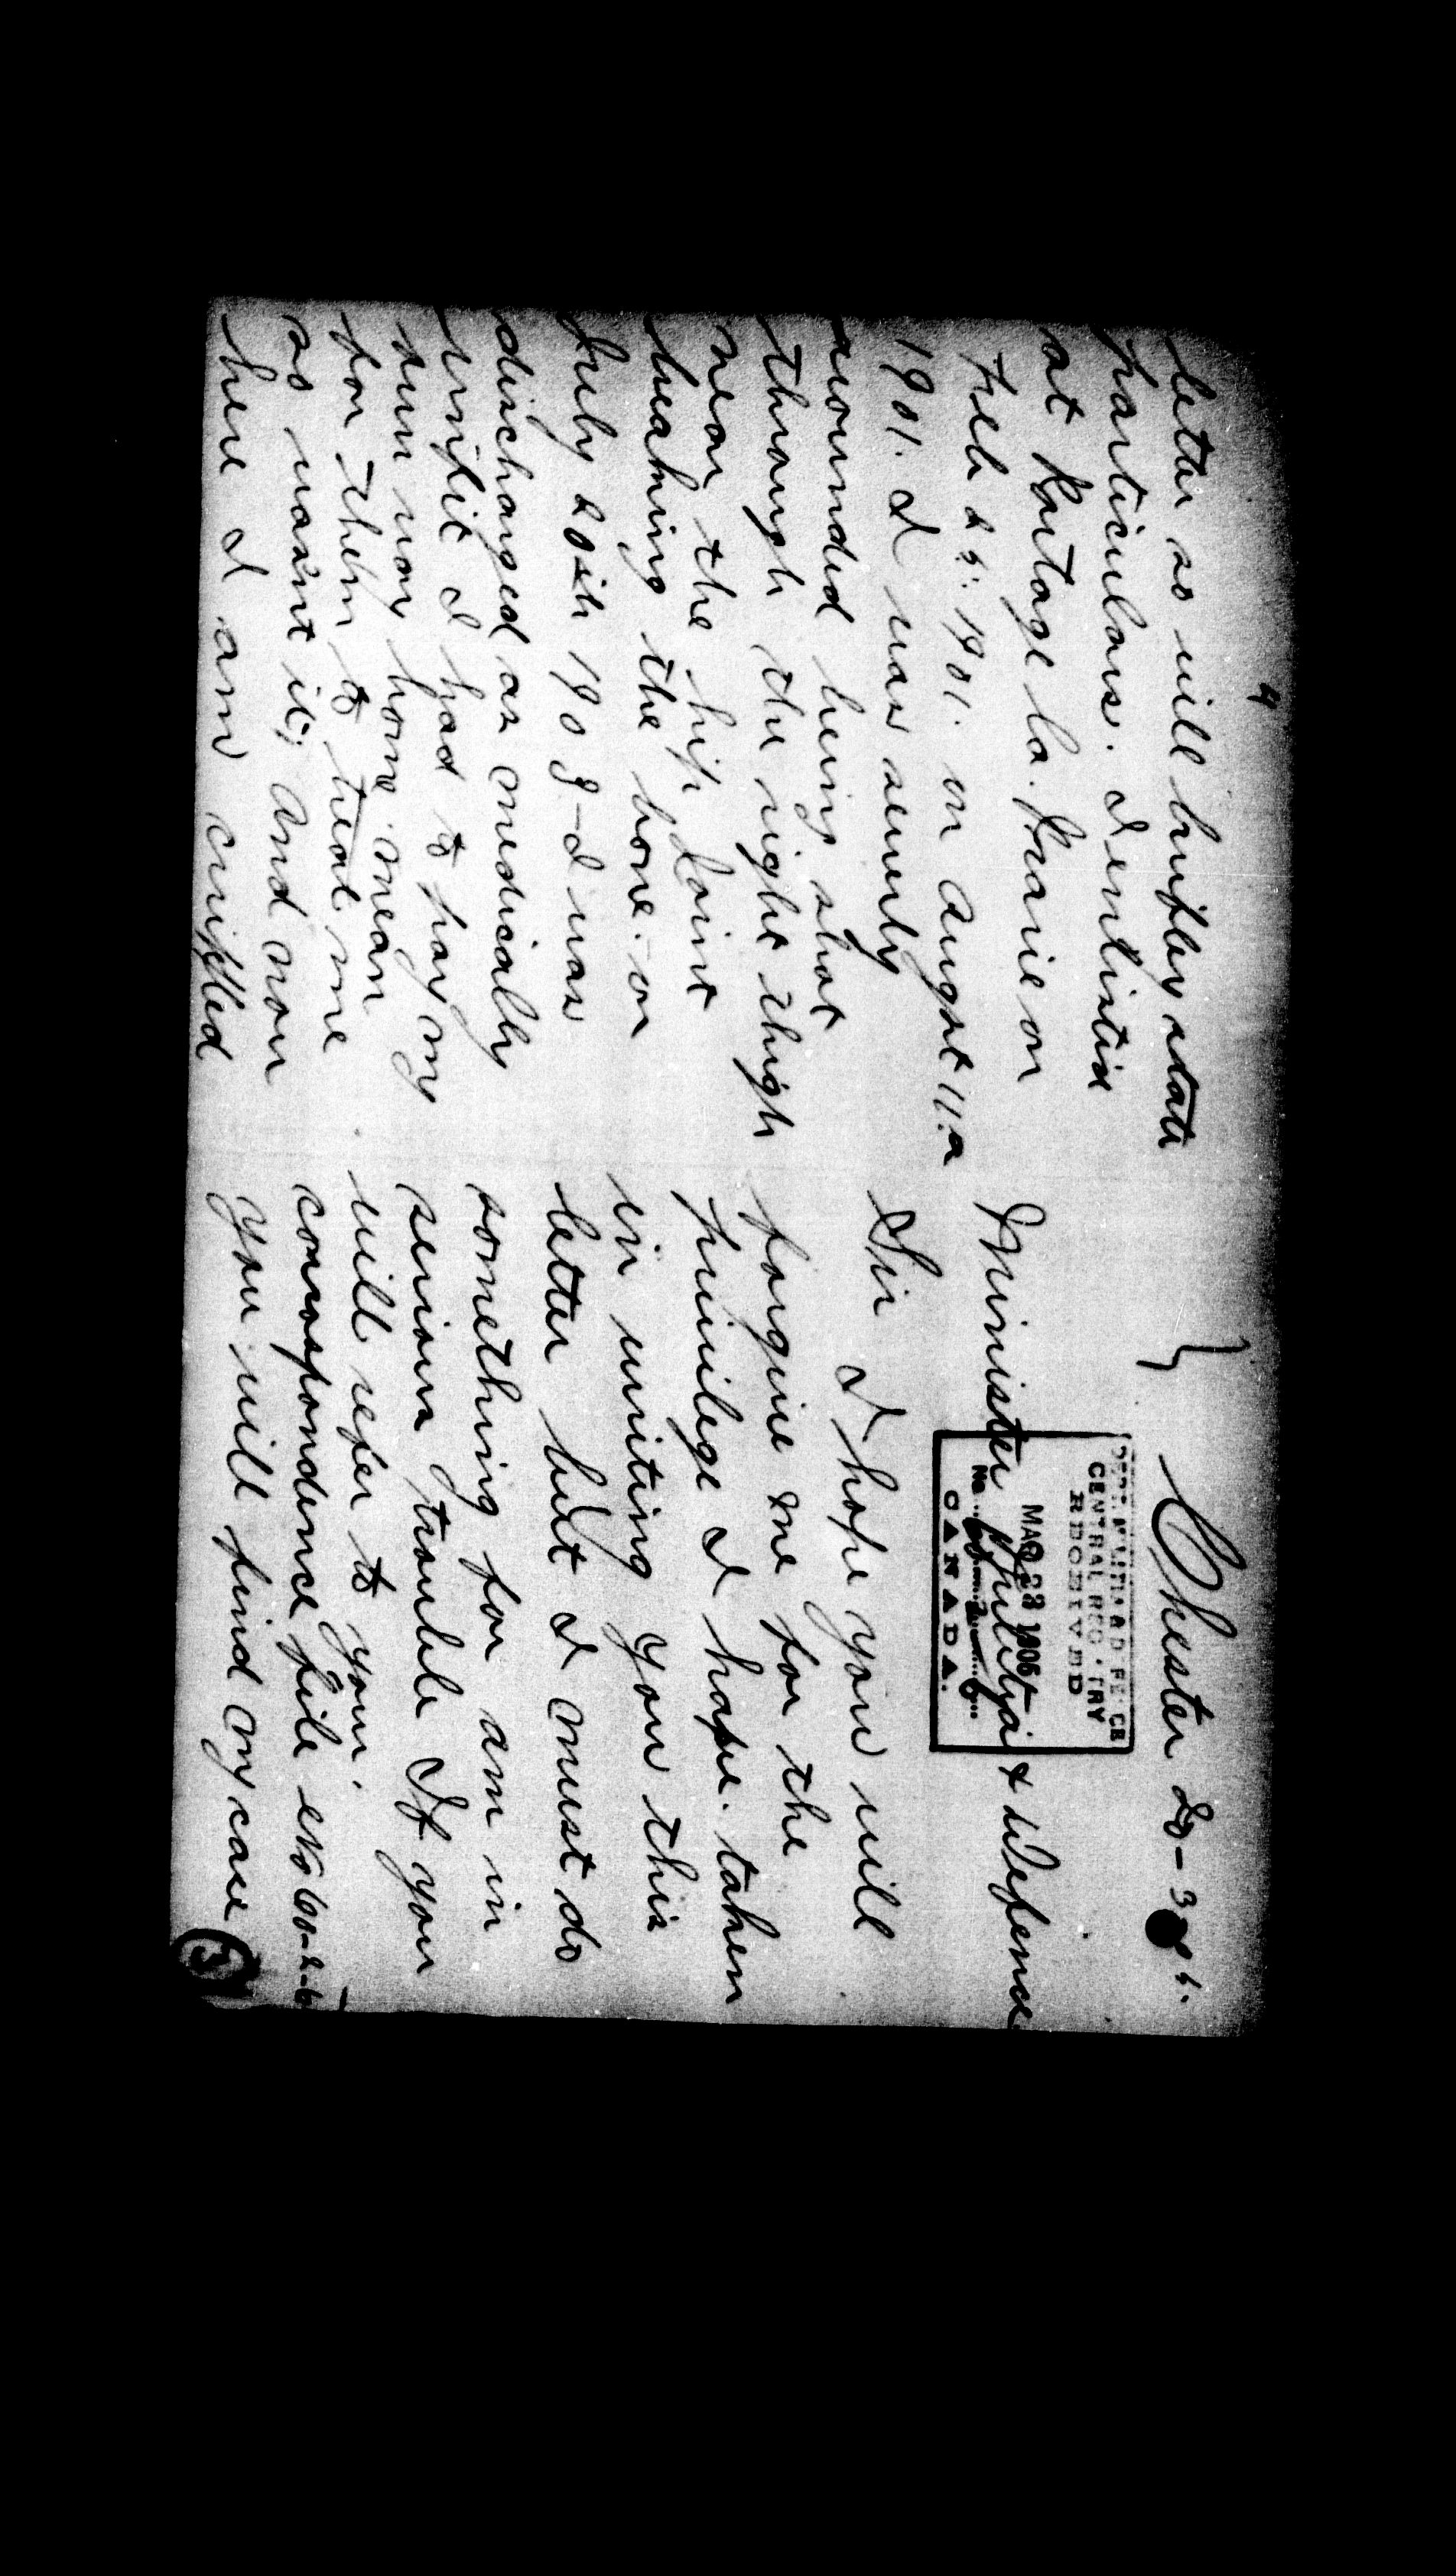 4
letter so will briefley state
particulars. I enlisted
at Portage la. Prairie on
Feb 25. 1901. on August 11.
1901. I was severly
wounded being shot
through the right thigh
near the hip Joint
breaking the bone. on
July 20th 1903 - I was
discharged as medically
unfit I had to pay my
own way home. mean
for them to treat me
so wasint it; and now
here I am crippled
Chester 20-3
DEPT. MILITIA AND DEFENCE
CENTRAL REGISTRY
RECEIVED
MAR 23 1905
No.
CANADA.
Minister Militia & Defence
Sir I hope you will
forgive me for the
privilege I have. taken
in writing you this
letter but I must do
something for am in
serious trouble If you
will refer to your.
corrospondence file No 60-2-6
you will find my case
3